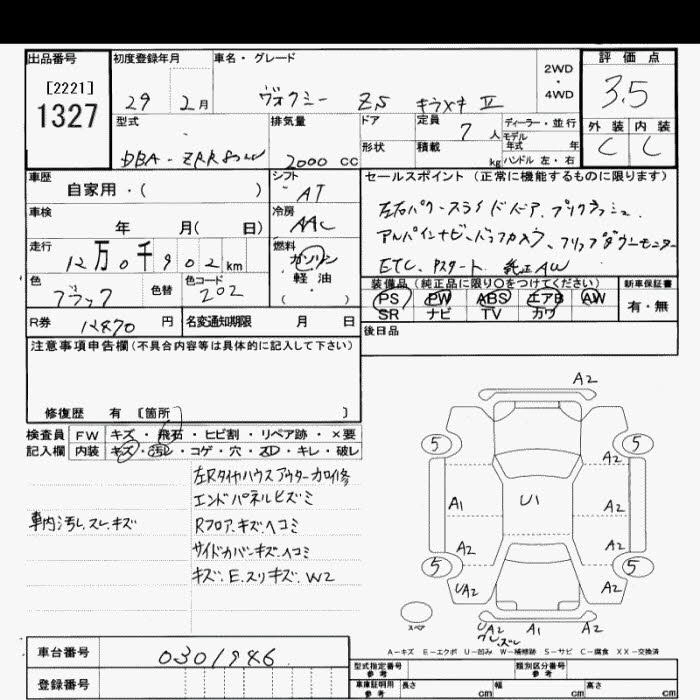 出品番号 初度登録年月 車名・グレード 評価点
[2221]
1327
29 2月 ヴォクシー ZS キラメキ Ⅱ
2WD
・
4WD
3.5
型式 排気量 ドア 定員 7 人 ディーラー・並行
モデル
年式 年
外装 内装
C C
DBA-ZRR80W 2000 CC 形状 積載 kg ハンドル 左・右
車歴 シフト セールスポイント (正常に機能するものに限ります)
自家用・( ) AT
左右パワースライドドア、プリクラッシュ
車検 冷房
年 月( 日) AAC
アルパインナビ、バックカメラ、フリップダウンモニター
走行 燃料
12万0千902km ガソリン
軽油
( )
ETC、Pスタート 純正AW
色 色替 色コード
ブラック 202
装備品 (純正品に限り○をつけてください) 新車保証書
PS PW ABS エアB AW 有・無
SR ナビ TV カワ
R券 12870 円 名変通知期限 月 日
後日品
注意事項申告欄(不具合内容等は具体的に記入して下さい)
修復歴 有 〔箇所 〕
検査員 FW キズ・飛石・ヒビ割・リペア跡・×要
記入欄 内装 キズ・汚レ・コゲ・穴・ZD・キレ・破レ
左Rタイヤハウスアウターカロイ修
エンドパネルヒズミ
車内汚レ、スレ、キズ
Rフロア、キズ、ヘコミ
サイドカバンキズ、ヘコミ
キズ、E、スリキズ、W2
A2
5 5
A2
A1 U1 A2
A2 A2
5 5
UA2 A2
スペア
UA2 A1 A2
A-キズ E-エクボ U-凹み W-補修跡 S-サビ C-腐食 XX-交換済
車台番号 0301946
登録番号
型式指定番号
参考
類別区分番号
参考
車庫証明用
参考
長さ cm 幅 cm 高さ cm